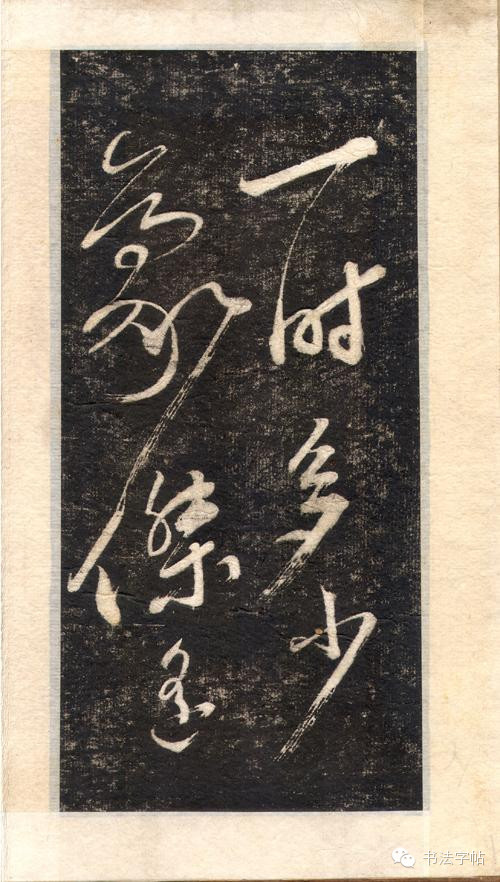 一时多少
豪傑遥
书法字帖